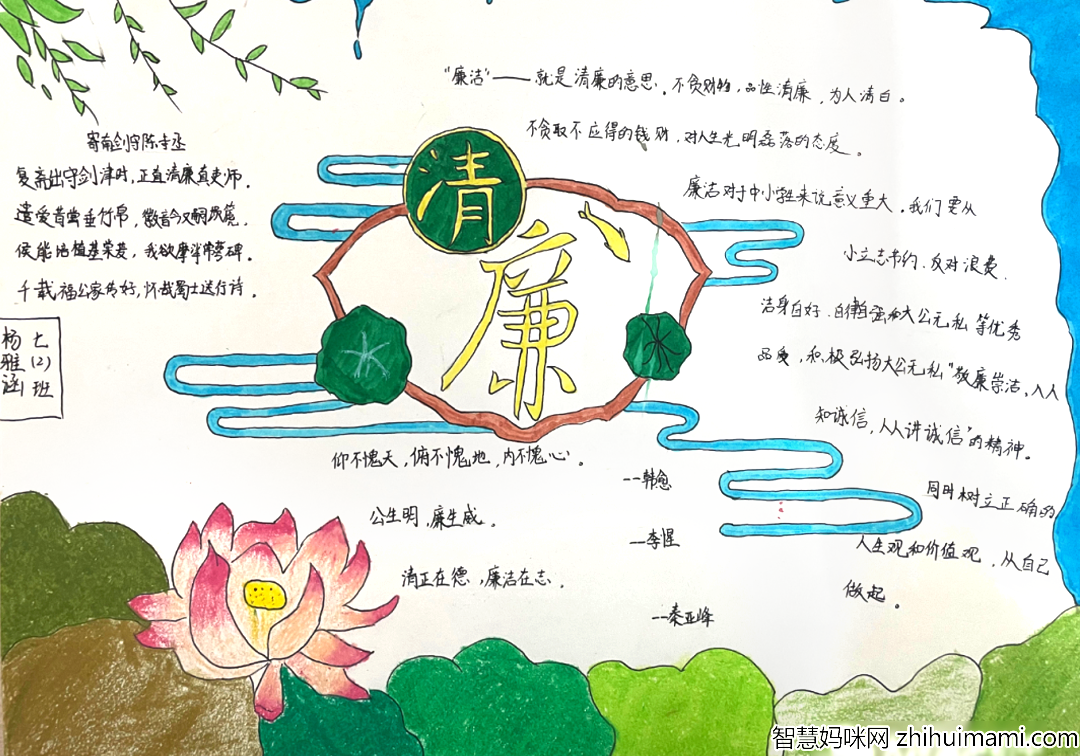 "廉洁"——就是清廉的意思。不贪财物，品性清廉，为人清白。
不贪取不应得的钱财，对人生光明磊落的态度。
廉洁对于中小学生来说意义重大，我们要从
小立志节约、反对浪费、
洁身自好、自律自强和大公无私等优秀
品质，积极弘扬大公无私"敬廉崇洁，人人
知诚信，人人讲诚信"的精神。
同时树立正确的
人生观和价值观，从自己
做起。
清
廉
寄南剑守陈寺丞
复斋出守剑津时，正直清廉真吏师。
遗爱昔尝垂竹帛，
侯能培植基荣，我欲摩岩碑。
千载福公家传好，怀哉蜀士送行诗。
七(2)班
杨雅涵
仰不愧天，俯不愧地，内不愧心。
--韩愈
公生明，廉生威。
--李惺
清正在德，廉洁在志。
--秦亚峰
智慧妈咪网 zhihuimami.com